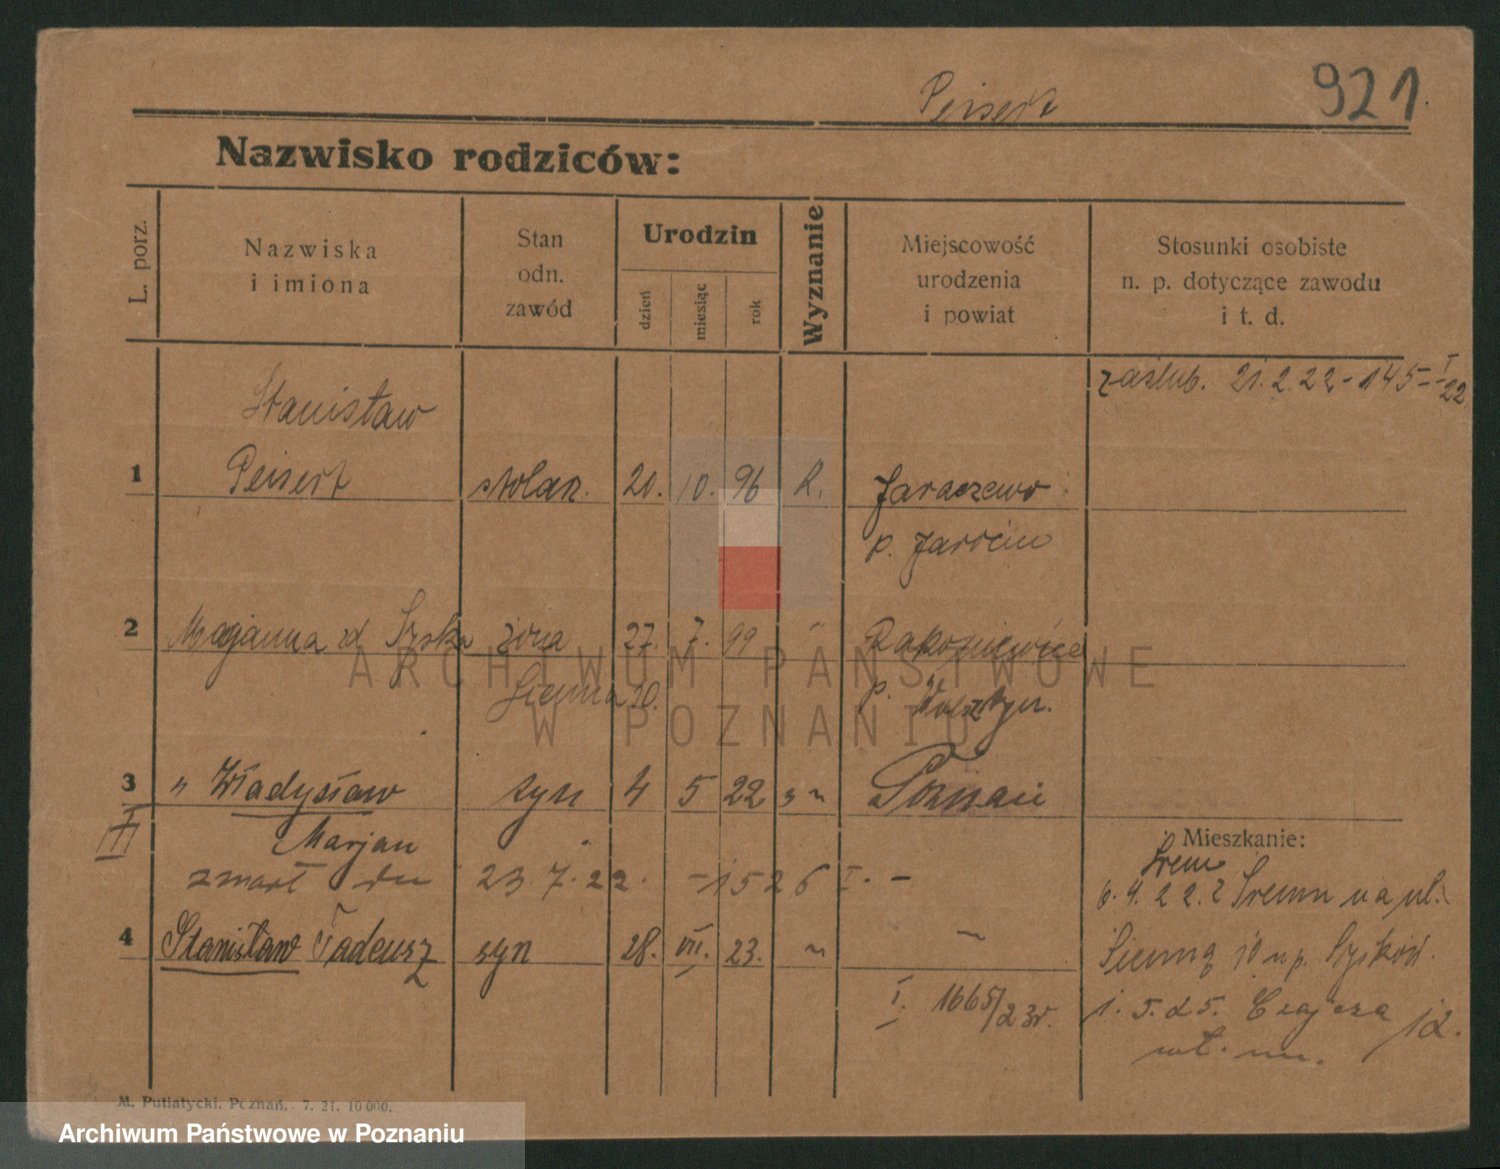 Peisert
921.
Nazwisko rodziców:
L. porz.
Nazwiska
i imiona
Stan
odn.
zawód
Urodzin
dzień
miesiąc
rok
Wyznanie
Miejscowość
urodzenia
i powiat
Stosunki osobiste
n. p. dotyczące zawodu
i t. d.
zaślub. 21.2.22 - 145 - I - 22
Stanisław
1 Peisert stolarz. 20. 10. 96 k. Jaraczewo
p. Jarocin
2 Marjanna żona 27. 7. 99 " Rakoniewice
Sienna 10. p. Wolsztyn.
ARCHIWUM PAŃSTWOWE
W POZNANIU
3 " Władysław syn 4 5 22 Poznań
III Marjan
zmarł dn 23 7. 22. - 1526 I. -
Mieszkanie:
Śrem
6. 4. 22. z Śremu na ul.
4 Stanisław Tadeusz syn 28. VII. 23.
Sienną 10 u p.
I. 1665/23r.
1. 5. 25. Czajcza 12.
M. Putiatycki, Poznań. - 7. 21. 10 000.
Archiwum Państwowe w Poznaniu